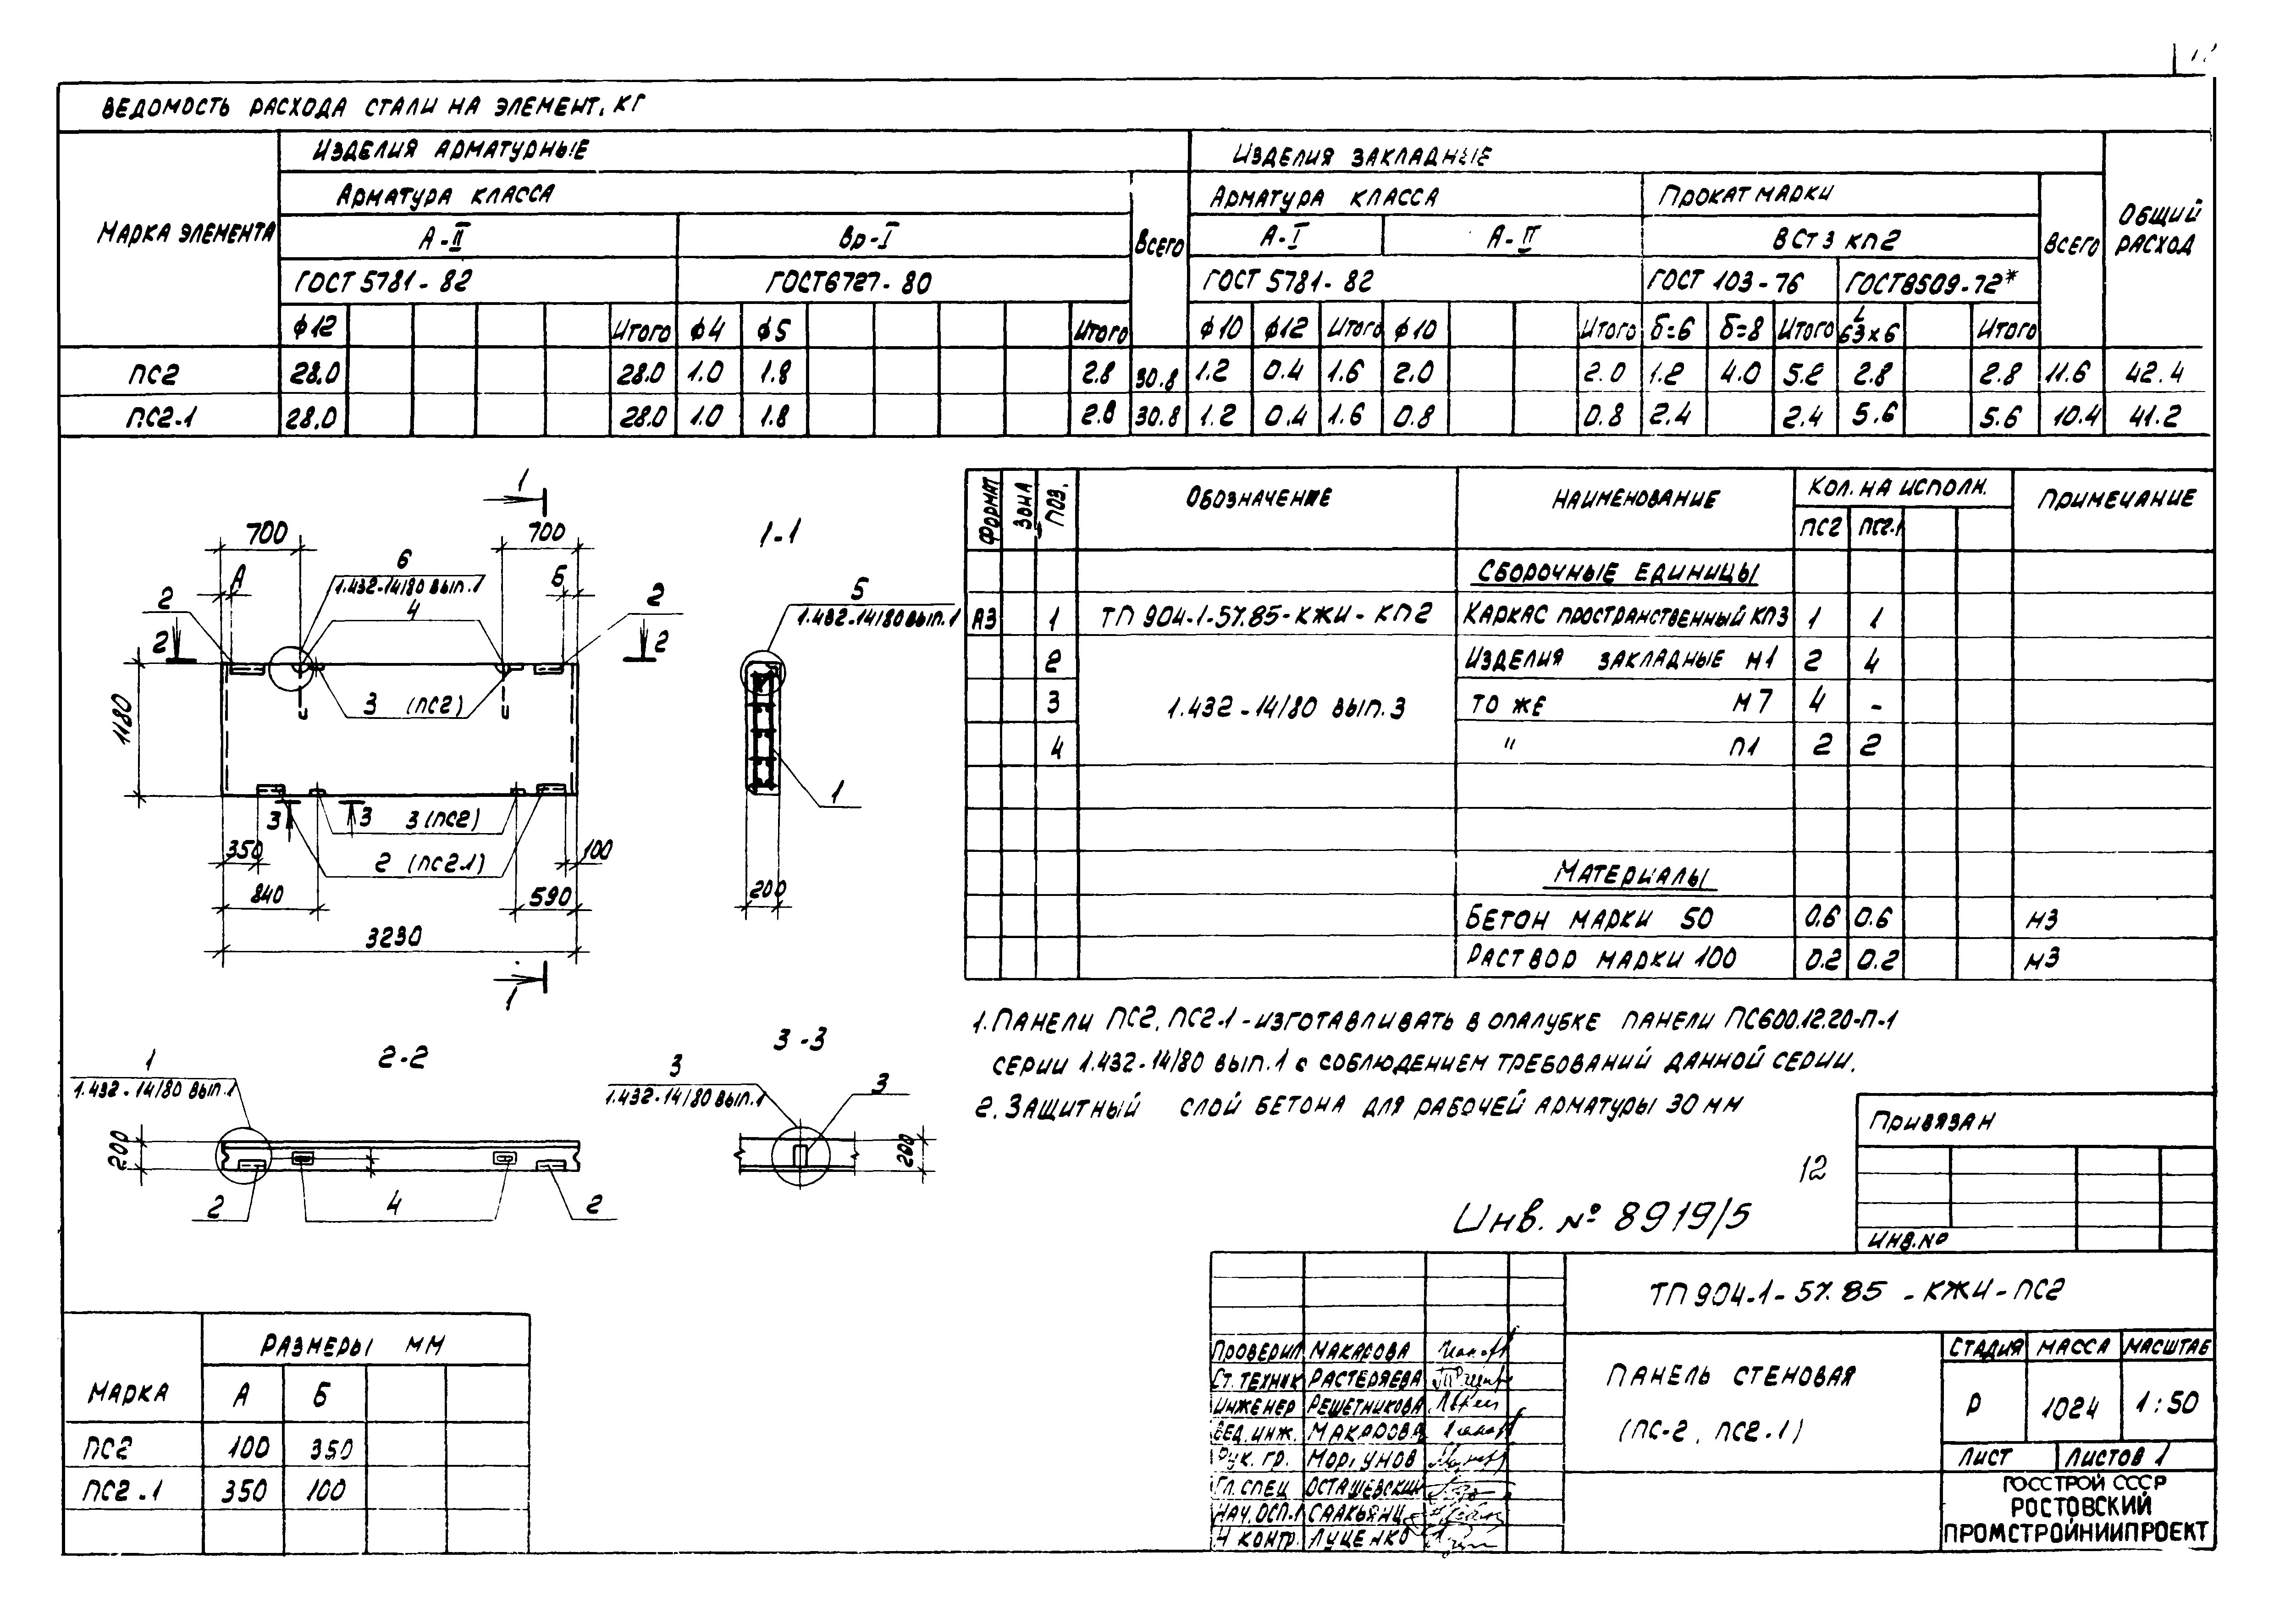 ВЕДОМОСТЬ РАСХОДА СТАЛИ НА ЭЛЕМЕНТ, КГ
МАРКА ЭЛЕМЕНТА
ИЗДЕЛИЯ АРМАТУРНЫЕ
ИЗДЕЛИЯ ЗАКЛАДНЫЕ
ОБЩИЙ РАСХОД
АРМАТУРА КЛАССА
ВСЕГО
АРМАТУРА КЛАССА
ПРОКАТ МАРКИ
ВСЕГО
А-II
Вр-I
А-I
А-II
ВСТ3 КП2
ГОСТ 5781-82
ГОСТ6727-80
ГОСТ 5781-82
ГОСТ 103-76
ГОСТ8509-72*
ϕ12 Итого ϕ4 ϕ5 Итого ϕ10 ϕ12 Итого ϕ10 Итого δ=6 δ=8 Итого L 63×6 Итого
ПС2 28.0 28.0 1.0 1.8 2.8 30.8 1.2 0.4 1.6 2.0 2.0 1.2 4.0 5.2 2.8 2.8 11.6 42.4
ПС2-1 28.0 28.0 1.0 1.8 2.8 30.8 1.2 0.4 1.6 0.8 0.8 2.4 2.4 5.6 5.6 10.4 41.2
1
700
700
6
1.432-14/80 ВЫП.1
А
Б
2
4
2
2
2
1180
3 (ПС2)
3
3
3 (ПС2)
350
2 (ПС2-1)
100
840
590
3230
1
1-1
5
1.432-14/80 ВЫП.1
1
200
ФОРМАТ
ЗОНА
ПОЗ.
ОБОЗНАЧЕНИЕ
НАИМЕНОВАНИЕ
КОЛ. НА ИСПОЛН.
ПРИМЕЧАНИЕ
ПС2 ПС2-1
СБОРОЧНЫЕ ЕДИНИЦЫ
А3 1 ТП 904-1-57.85-КЖИ-КП2 КАРКАС ПРОСТРАНСТВЕННЫЙ КП3 1 1
2 ИЗДЕЛИЯ ЗАКЛАДНЫЕ М1 2 4
3 1.432-14/80 ВЫП.3 ТО ЖЕ М7 4 -
4 " П1 2 2
МАТЕРИАЛЫ
БЕТОН МАРКИ 50 0.6 0.6 М3
РАСТВОР МАРКИ 100 0.2 0.2 М3
1. ПАНЕЛИ ПС2, ПС2-1 - ИЗГОТАВЛИВАТЬ В ОПАЛУБКЕ ПАНЕЛИ ПС600.12.20-П-1
СЕРИИ 1.432-14/80 ВЫП.1 с СОБЛЮДЕНИЕМ ТРЕБОВАНИЙ ДАННОЙ СЕРИИ.
2. ЗАЩИТНЫЙ СЛОЙ БЕТОНА ДЛЯ РАБОЧЕЙ АРМАТУРЫ 30 ММ
2-2
1
1.432-14/80 ВЫП.1
200
2
4
2
3-3
3
1.432-14/80 ВЫП.1
3
200
12
Инв. № 8919/5
ПРИВЯЗАН
ИНВ.№
МАРКА
РАЗМЕРЫ ММ
А Б
ПС2 100 350
ПС2-1 350 100
ПРОВЕРИЛ МАКАРОВА
СТ. ТЕХНИК РАСТЕРЯЕВА
ИНЖЕНЕР РЕШЕТНИКОВА
ВЕД. ИНЖ. МАКАРОВА
РУК. ГР. МОРГУНОВ
ГЛ. СПЕЦ ОСТАШЕВСКИЙ
НАЧ. ОСП-1 СААКЬЯНЦ
Н КОНТР. ЛУЦЕНКО
ТП 904-1-57.85-КЖИ-ПС2
ПАНЕЛЬ СТЕНОВАЯ
(ПС-2, ПС2-1)
СТАДИЯ МАССА МАСШТАБ
Р 1024 1:50
ЛИСТ ЛИСТОВ 1
ГОССТРОЙ СССР
РОСТОВСКИЙ
ПРОМСТРОЙНИИПРОЕКТ